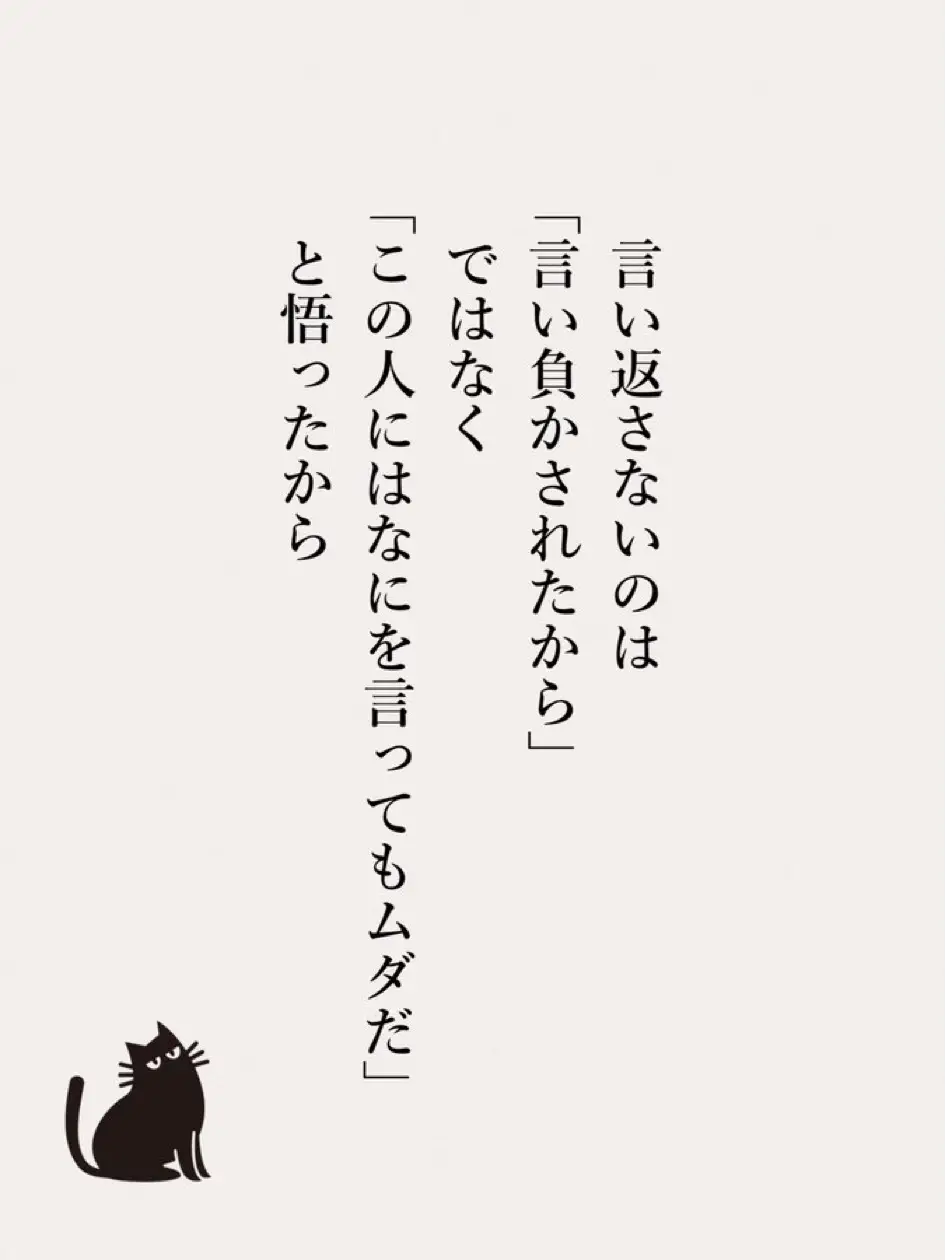 言い返さないのは
「言い負かされたから」
ではなく
「この人にはなにを言ってもムダだ」
と悟ったから